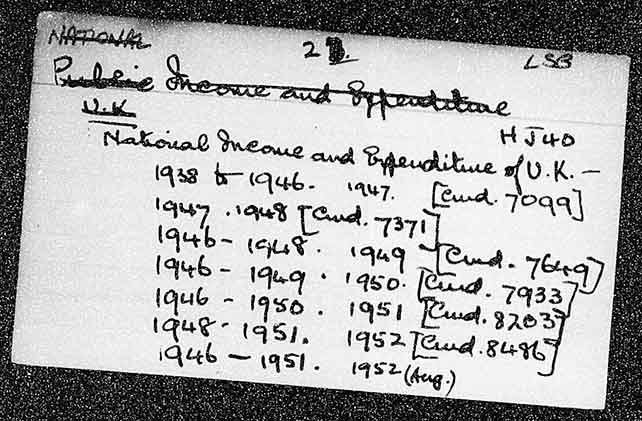 NATIONAL 2 LSB
Public Income and Expenditure
U.K
HJ40
National Income and Expenditure of U.K. —
1938 to 1946. 1947. [Cmd. 7099]
1947. 1948 [Cmd. 7371]
1946 – 1948. 1949 [Cmd. 7649]
1946 – 1949. 1950. [Cmd. 7933]
1946 – 1950. 1951 [Cmd. 8203]
1948 - 1951. 1952 [Cmd. 8486]
1946 — 1951. 1952 (Aug.)